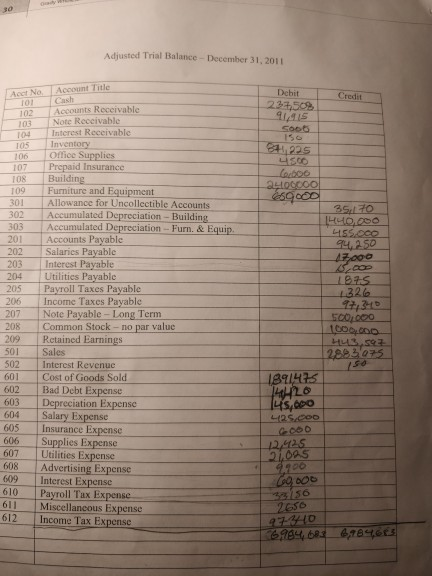 30
Adjusted Trial Balance – December 31, 2011
Acct No. Account Title Debit Credit
101 Cash 237,508
102 Accounts Receivable 91,915
103 Note Receivable 5000
104 Interest Receivable 150
105 Inventory
106 Office Supplies 4500
107 Prepaid Insurance 6,000
108 Building 2400000
109 Furniture and Equipment 650,000
301 Allowance for Uncollectible Accounts 35,170
302 Accumulated Depreciation – Building 1440,000
303 Accumulated Depreciation – Furn. & Equip. 455,000
201 Accounts Payable 94,250
202 Salaries Payable 17,000
203 Interest Payable 15,000
204 Utilities Payable 1875
205 Payroll Taxes Payable 1326
206 Income Taxes Payable 97,340
207 Note Payable – Long Term 500,000
208 Common Stock – no par value 1000,000
209 Retained Earnings 443,597
501 Sales 2,883,975
502 Interest Revenue 150
601 Cost of Goods Sold 1891475
602 Bad Debt Expense 14420
603 Depreciation Expense 145,000
604 Salary Expense 425,000
605 Insurance Expense 6000
606 Supplies Expense 12,925
607 Utilities Expense 21,025
608 Advertising Expense 9900
609 Interest Expense 60,000
610 Payroll Tax Expense 33150
611 Miscellaneous Expense 2650
612 Income Tax Expense 97340
6,984,683 6,984,683